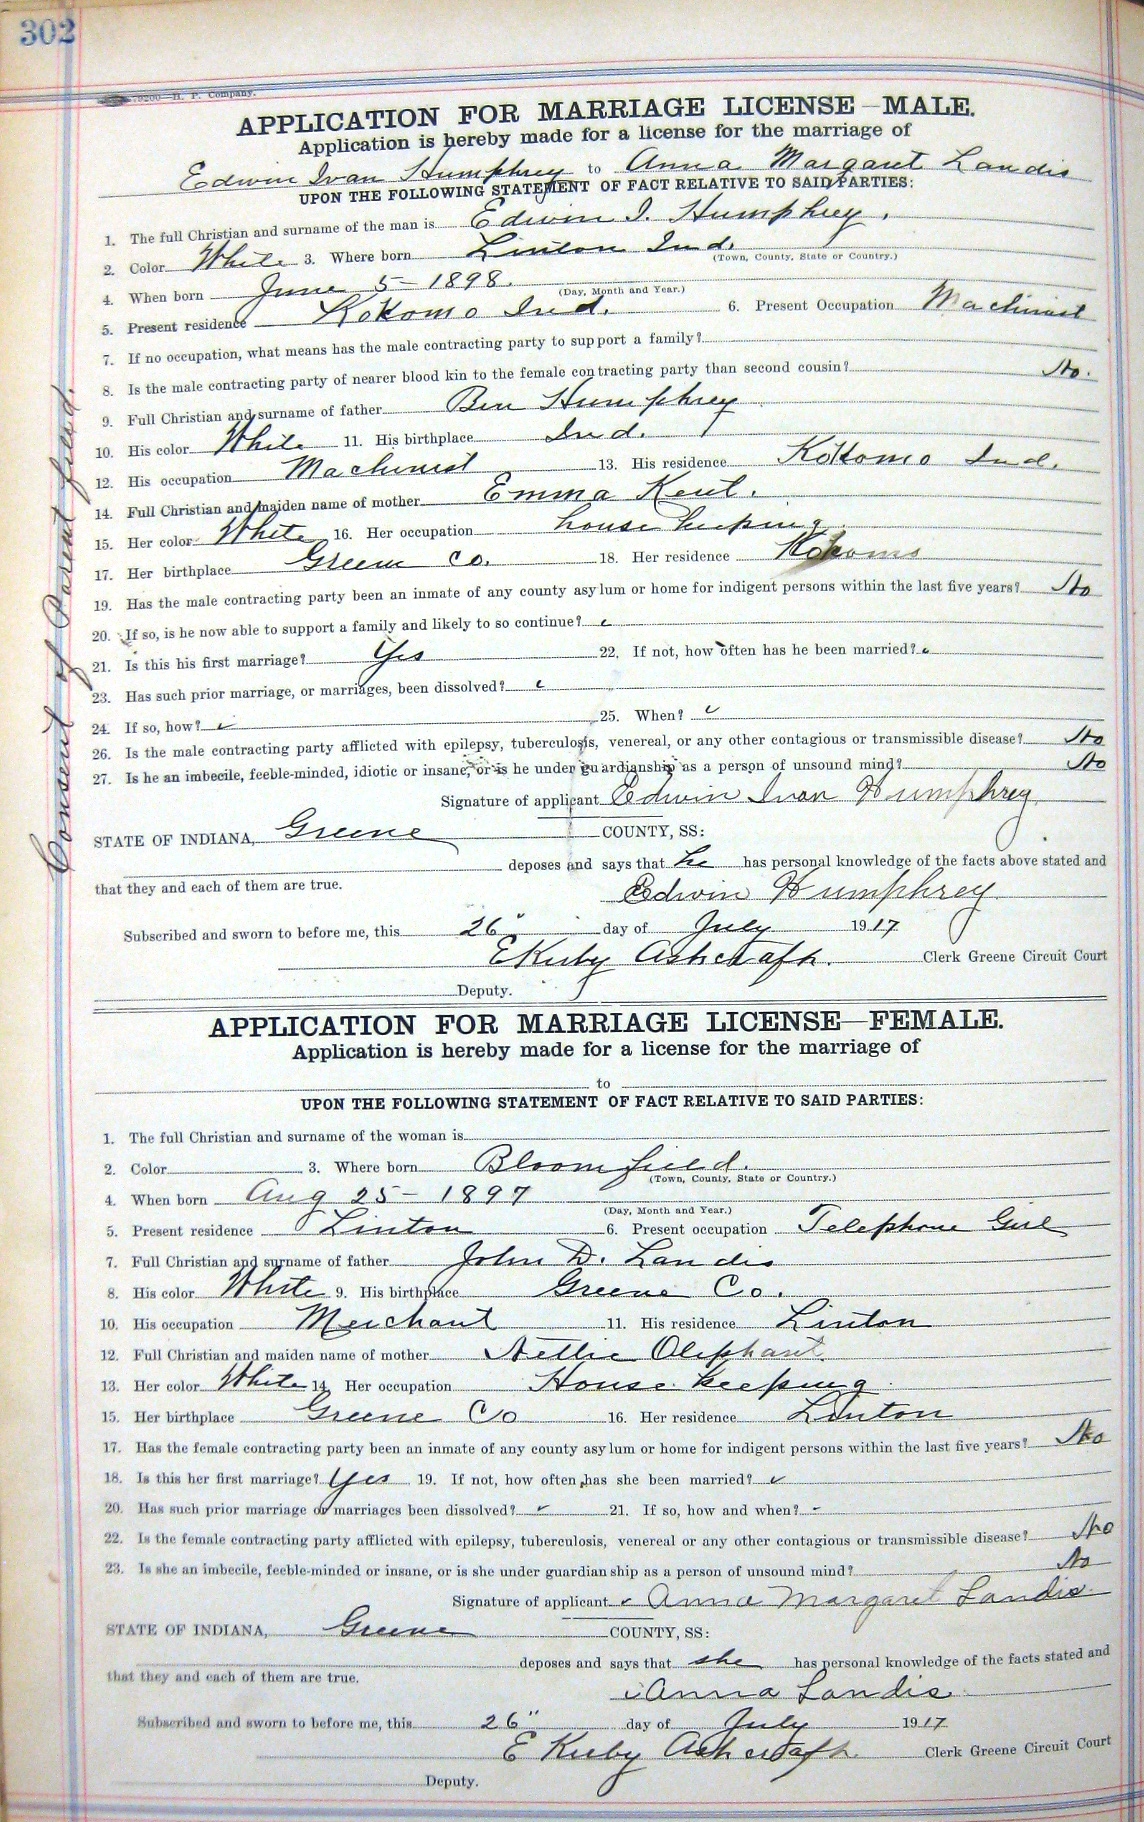 302
9200—H. P. Company.
APPLICATION FOR MARRIAGE LICENSE—MALE.
Application is hereby made for a license for the marriage of
Edwin Ivan Humphrey to Anna Margaret Landis
UPON THE FOLLOWING STATEMENT OF FACT RELATIVE TO SAID PARTIES:
1. The full Christian and surname of the man is Edwin I. Humphrey.
2. Color White 3. Where born Linton Ind.
(Town, County, State or Country.)
4. When born June 5 - 1898.
(Day, Month and Year.)
5. Present residence Kokomo Ind. 6. Present Occupation Machinist
7. If no occupation, what means has the male contracting party to support a family?
8. Is the male contracting party of nearer blood kin to the female contracting party than second cousin? No.
9. Full Christian and surname of father Ben Humphrey
10. His color White 11. His birthplace Ind.
12. His occupation Machinist 13. His residence Kokomo Ind.
14. Full Christian and maiden name of mother Emma Kent.
15. Her color White 16. Her occupation house keeping
17. Her birthplace Greene Co. 18. Her residence Kokomo
19. Has the male contracting party been an inmate of any county asylum or home for indigent persons within the last five years? No
20. If so, is he now able to support a family and likely to so continue?
21. Is this his first marriage? Yes 22. If not, how often has he been married?
23. Has such prior marriage, or marriages, been dissolved?
24. If so, how? 25. When?
26. Is the male contracting party afflicted with epilepsy, tuberculosis, venereal, or any other contagious or transmissible disease? No
27. Is he an imbecile, feeble-minded, idiotic or insane, or is he under guardianship as a person of unsound mind? No
Signature of applicant Edwin Ivan Humphrey
STATE OF INDIANA, Greene COUNTY, SS:
deposes and says that he has personal knowledge of the facts above stated and
that they and each of them are true.
Edwin Humphrey
Subscribed and sworn to before me, this 26" day of July 1917
E Kirby Ashcraft. Clerk Greene Circuit Court
Deputy.
Consent of Parent filed.
APPLICATION FOR MARRIAGE LICENSE—FEMALE.
Application is hereby made for a license for the marriage of
to
UPON THE FOLLOWING STATEMENT OF FACT RELATIVE TO SAID PARTIES:
1. The full Christian and surname of the woman is
2. Color 3. Where born Bloomfield.
(Town, County, State or Country.)
4. When born Aug 25 - 1897
(Day, Month and Year.)
5. Present residence Linton 6. Present occupation Telephone Girl
7. Full Christian and surname of father John D. Landis
8. His color White 9. His birthplace Greene Co.
10. His occupation Merchant 11. His residence Linton
12. Full Christian and maiden name of mother Nettie Oliphant.
13. Her color White 14. Her occupation House keeping
15. Her birthplace Greene Co 16. Her residence Linton
17. Has the female contracting party been an inmate of any county asylum or home for indigent persons within the last five years? No
18. Is this her first marriage? Yes 19. If not, how often has she been married?
20. Has such prior marriage or marriages been dissolved? 21. If so, how and when? -
22. Is the female contracting party afflicted with epilepsy, tuberculosis, venereal or any other contagious or transmissible disease? No
23. Is she an imbecile, feeble-minded or insane, or is she under guardianship as a person of unsound mind? No
Signature of applicant Anna Margaret Landis
STATE OF INDIANA, Greene COUNTY, SS:
deposes and says that she has personal knowledge of the facts stated and
that they and each of them are true.
Anna Landis
Subscribed and sworn to before me, this 26" day of July 1917
E Kirby Ashcraft Clerk Greene Circuit Court
Deputy.